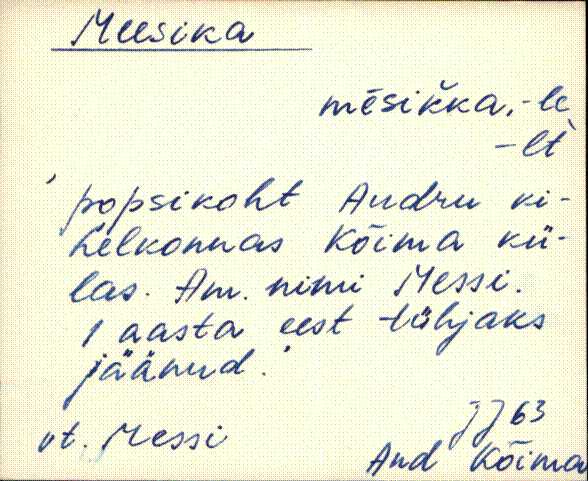 Meesika
mēsikka, -le
-lt̀
'popsikoht Audru ki-
helkonnas Kõima kü-
las. Am. nimi Messi.
1 aasta eest tühjaks
jäänud.'
JJ 63
vt. Messi
Aud Kõima